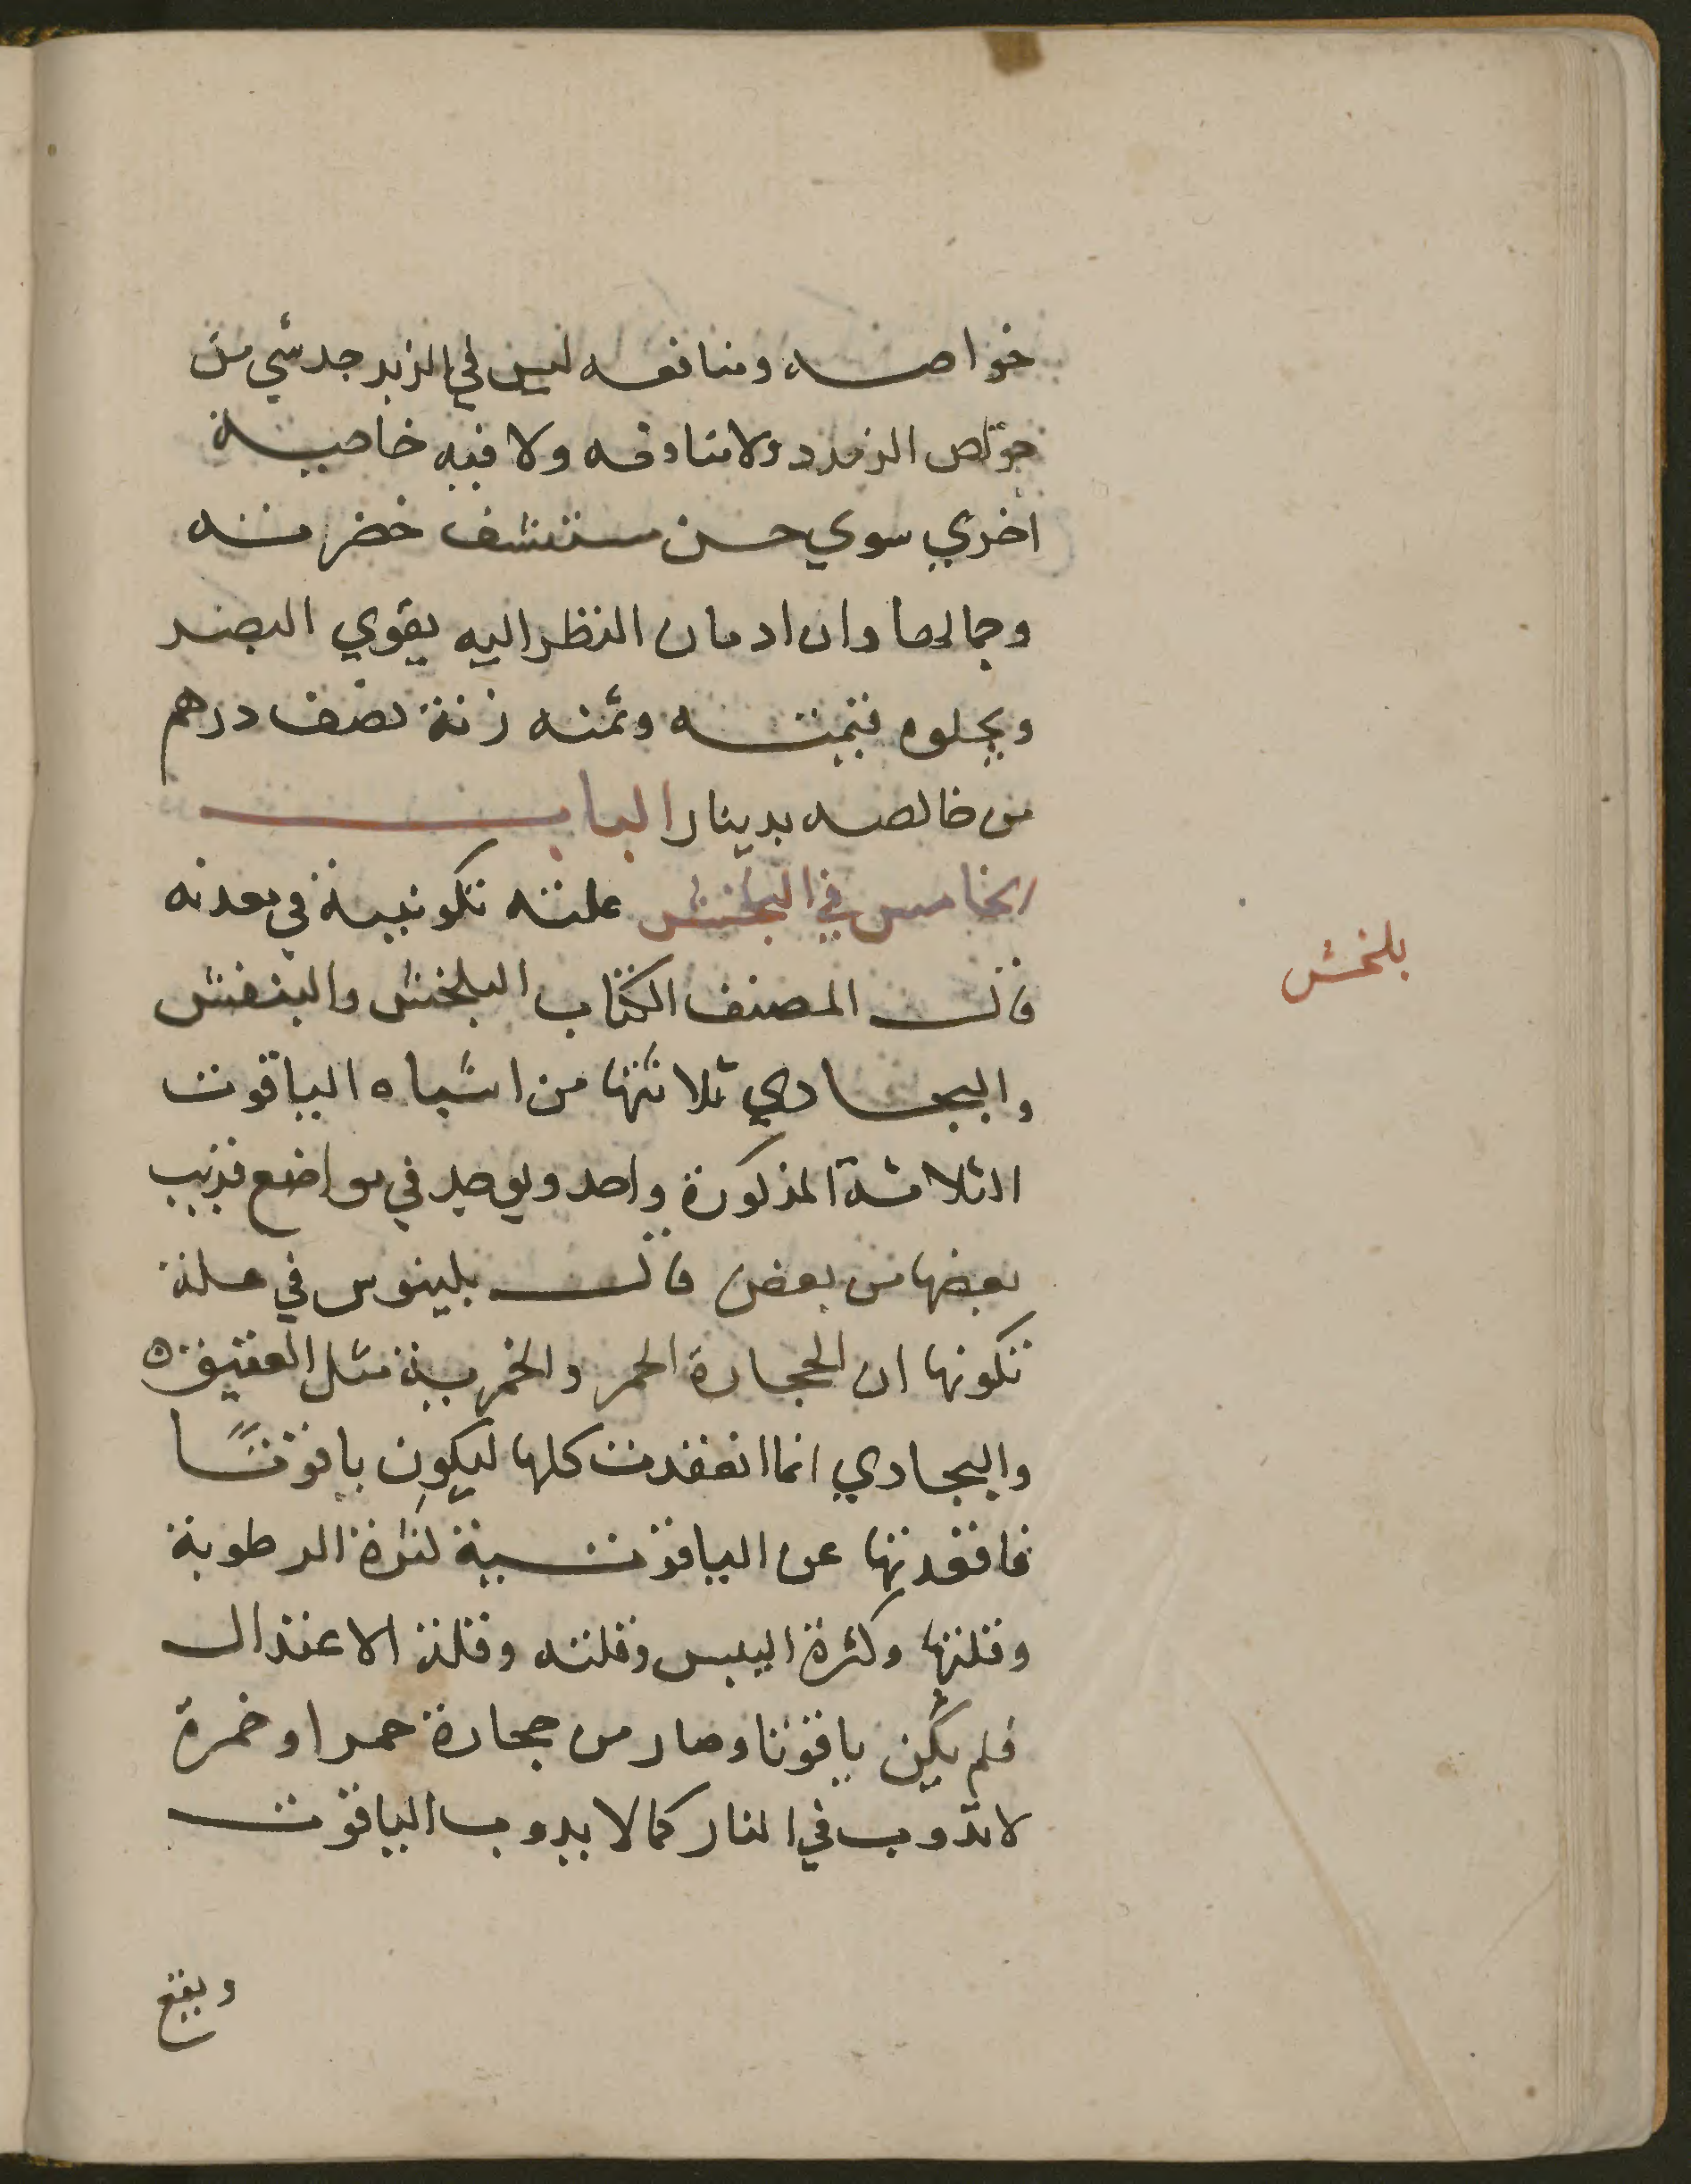 خواصه ومنافعه ليس في الزبرجد شي من
خواص الزمرد ولا منافعه ولا فيه خاصية
اخري سوي حسن مستشف خضرمته
وجمالها وان ادمان النظر اليه يقوي البصر
ويجلوه قيمته وثمنه زنة نصف درهم
من خالصه بدينار الباب
الخامس في البلخش علته تكونيية في معدنه
قال المصنف الكتاب البلخش والبنفش
والبجادي ثلاثتها من اشباه الياقوت
الثلاثة المذكورة واحد ويوجد في مواضع قريب
بعضها من بعض قال بلينوس في علة
تكونها ان الحجارة الحمر والخمرية مثل العقيق ه
والبجادي انما انعقدت كلها ليكون ياقوتًا
فاقعدتها عن الياقوتسية لثرة الرطوبة
وقلتها وكثرة اليبس وقلته وقلة الاعتدال
فلم يكن ياقوتا وصار من حجارة حمرا وخمرة
لا تذوب في النار كما لا يذوب الياقوت
ويقع
بلخش